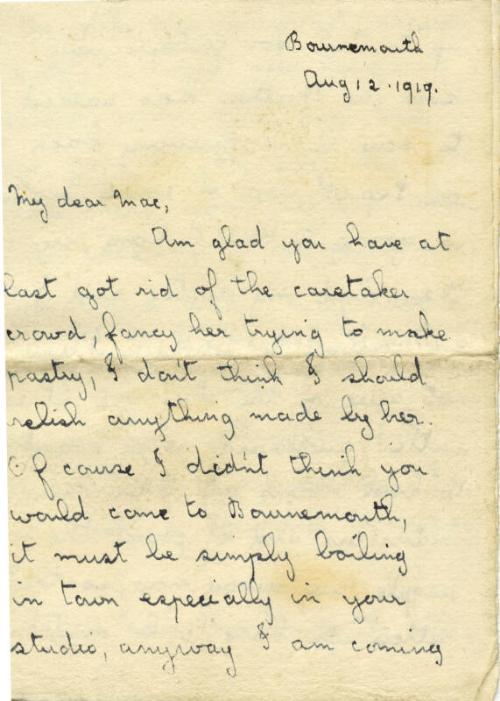 Bournemouth
Aug 12. 1919.
My dear Mac,
Am glad you have at
last got rid of the caretaker
crowd, fancy her trying to make
pastry, I don't think I should
relish anything made by her.
Of course I didn't think you
would come to Bournemouth,
it must be simply boiling
in town especially in your
studio, anyway I am coming